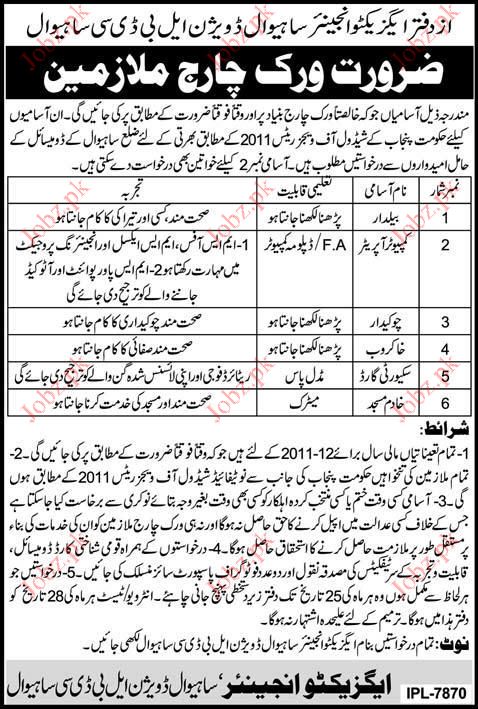 از دفتر ایگزیکٹو انجینئر ساہیوال ڈویژن ایل بی ڈی سی ساہیوال
ضرورت ورک چارج ملازمین
مندرجہ ذیل آسامیاں جو کہ خالصتاً ورک چارج بنیاد پر اور وقتاً فوقتاً ضرورت کے مطابق پر کی جائیں گی۔ ان آسامیوں
کیلئے حکومت پنجاب کے شیڈول آف ویجز ریٹس 2011 کے مطابق بھرتی کے لئے ضلع ساہیوال کے ڈومیسائل کے
حامل امیدواروں سے درخواستیں مطلوب ہیں۔ آسامی نمبر 2 کیلئے خواتین بھی درخواست دے سکتی ہیں۔
نمبر شمار نام آسامی تعلیمی قابلیت تجربہ
1 بیلدار پڑھنا لکھنا جانتا ہو صحت مند کسی اور تیرا کی کا کام جانتا ہو
2 کمپیوٹر آپریٹر F.A/ ڈپلومہ کمپیوٹر 1- ایم ایس آفس، ایم ایس ایکسل اور انجینئرنگ پروجیکٹ
میں مہارت رکھتا ہو 2- ایم ایس پاور پوائنٹ اور آٹو کیڈ
جاننے والے کو ترجیح دی جائے گی
3 چوکیدار پڑھنا لکھنا جانتا ہو صحت مند چوکیداری کا کام جانتا ہو
4 خاکروب پڑھنا لکھنا جانتا ہو صحت مند صفائی کا کام جانتا ہو
5 سکیورٹی گارڈ مڈل پاس ریٹائرڈ فوجی اور اپنی لائسنس شدہ گن والے کو ترجیح دی جائے گی
6 خادم مسجد میٹرک صحت مند اور مسجد کی خدمت کرنا جانتا ہو
شرائط:
1- تمام تعیناتیاں مالی سال برائے 12-2011 کے لئے ہیں جو کہ وقتاً فوقتاً ضرورت کے مطابق پر کی جائیں گی۔ 2-
تمام ملازمین کی تنخواہیں حکومت پنجاب کی جانب سے نوٹیفائیڈ شیڈول آف ویجز ریٹس 2011 کے مطابق ہوں
گی۔ 3- آسامی کسی وقت ختم یا کسی منتخب کردہ اہلکار کو کسی بھی وقت بغیر وجہ بتائے نوکری سے برخاست کیا جا سکتا ہے
جس کے خلاف کسی عدالت میں اپیل کرنے کا حق حاصل نہ ہوگا اور نہ ہی ورک چارج ملازمین کو ان کی خدمات کی بناء
پر مستقل طور پر ملازمت حاصل کرنے کا استحقاق حاصل ہوگا۔ 4- درخواستوں کے ہمراہ قومی شناختی کارڈ ڈومیسائل،
قابلیت و تجربہ کے سرٹیفکیٹس کی مصدقہ نقول اور دو عدد فوٹو گراف پاسپورٹ سائز منسلک کی جائیں۔ 5- درخواستیں جو
ہر لحاظ سے مکمل ہوں وہ ہر ماہ کی 25 تاریخ تک دفتر زیر دستخطی پہنچ جانی چاہئے۔ انٹرویو/ٹیسٹ ہر ماہ کی 28 تاریخ کو
دفتر ہذا میں ہوگا۔ ترمیم کے لئے علیحدہ اشتہار نہ ہوگا۔
نوٹ: تمام درخواستیں بنام ایگزیکٹو انجینئر ساہیوال ڈویژن ایل بی ڈی سی ساہیوال لکھی جائیں۔
ایگزیکٹو انجینئر، ساہیوال ڈویژن ایل بی ڈی سی ساہیوال
IPL-7870
Jobz.pk